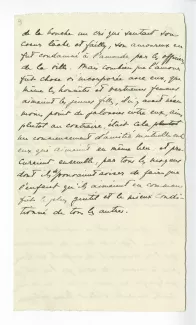 de la bouche un cri que sentait son
cœur lâche et failly, son amoureux en
fut condamné à l'amende par le
de la ville. Mais combien que l'amour
fut chose si incorporée avec eux, que
même les honnêtes et vertueuses femmes
aimaient les jeunes filles, s'il y avait
moins point de jalousie entre eux, ains
plutôt au contraire, était cela
un commencement d'amitié mutuelle entre
eux que d'aimer en même lieu et
ensemble, par tous les moyens
dont ils pouvaient aviser de faire que
l'enfant qu'ils aimaient en commun
fût le plus gentil et le mieux condi-
tionné de tous les autres.